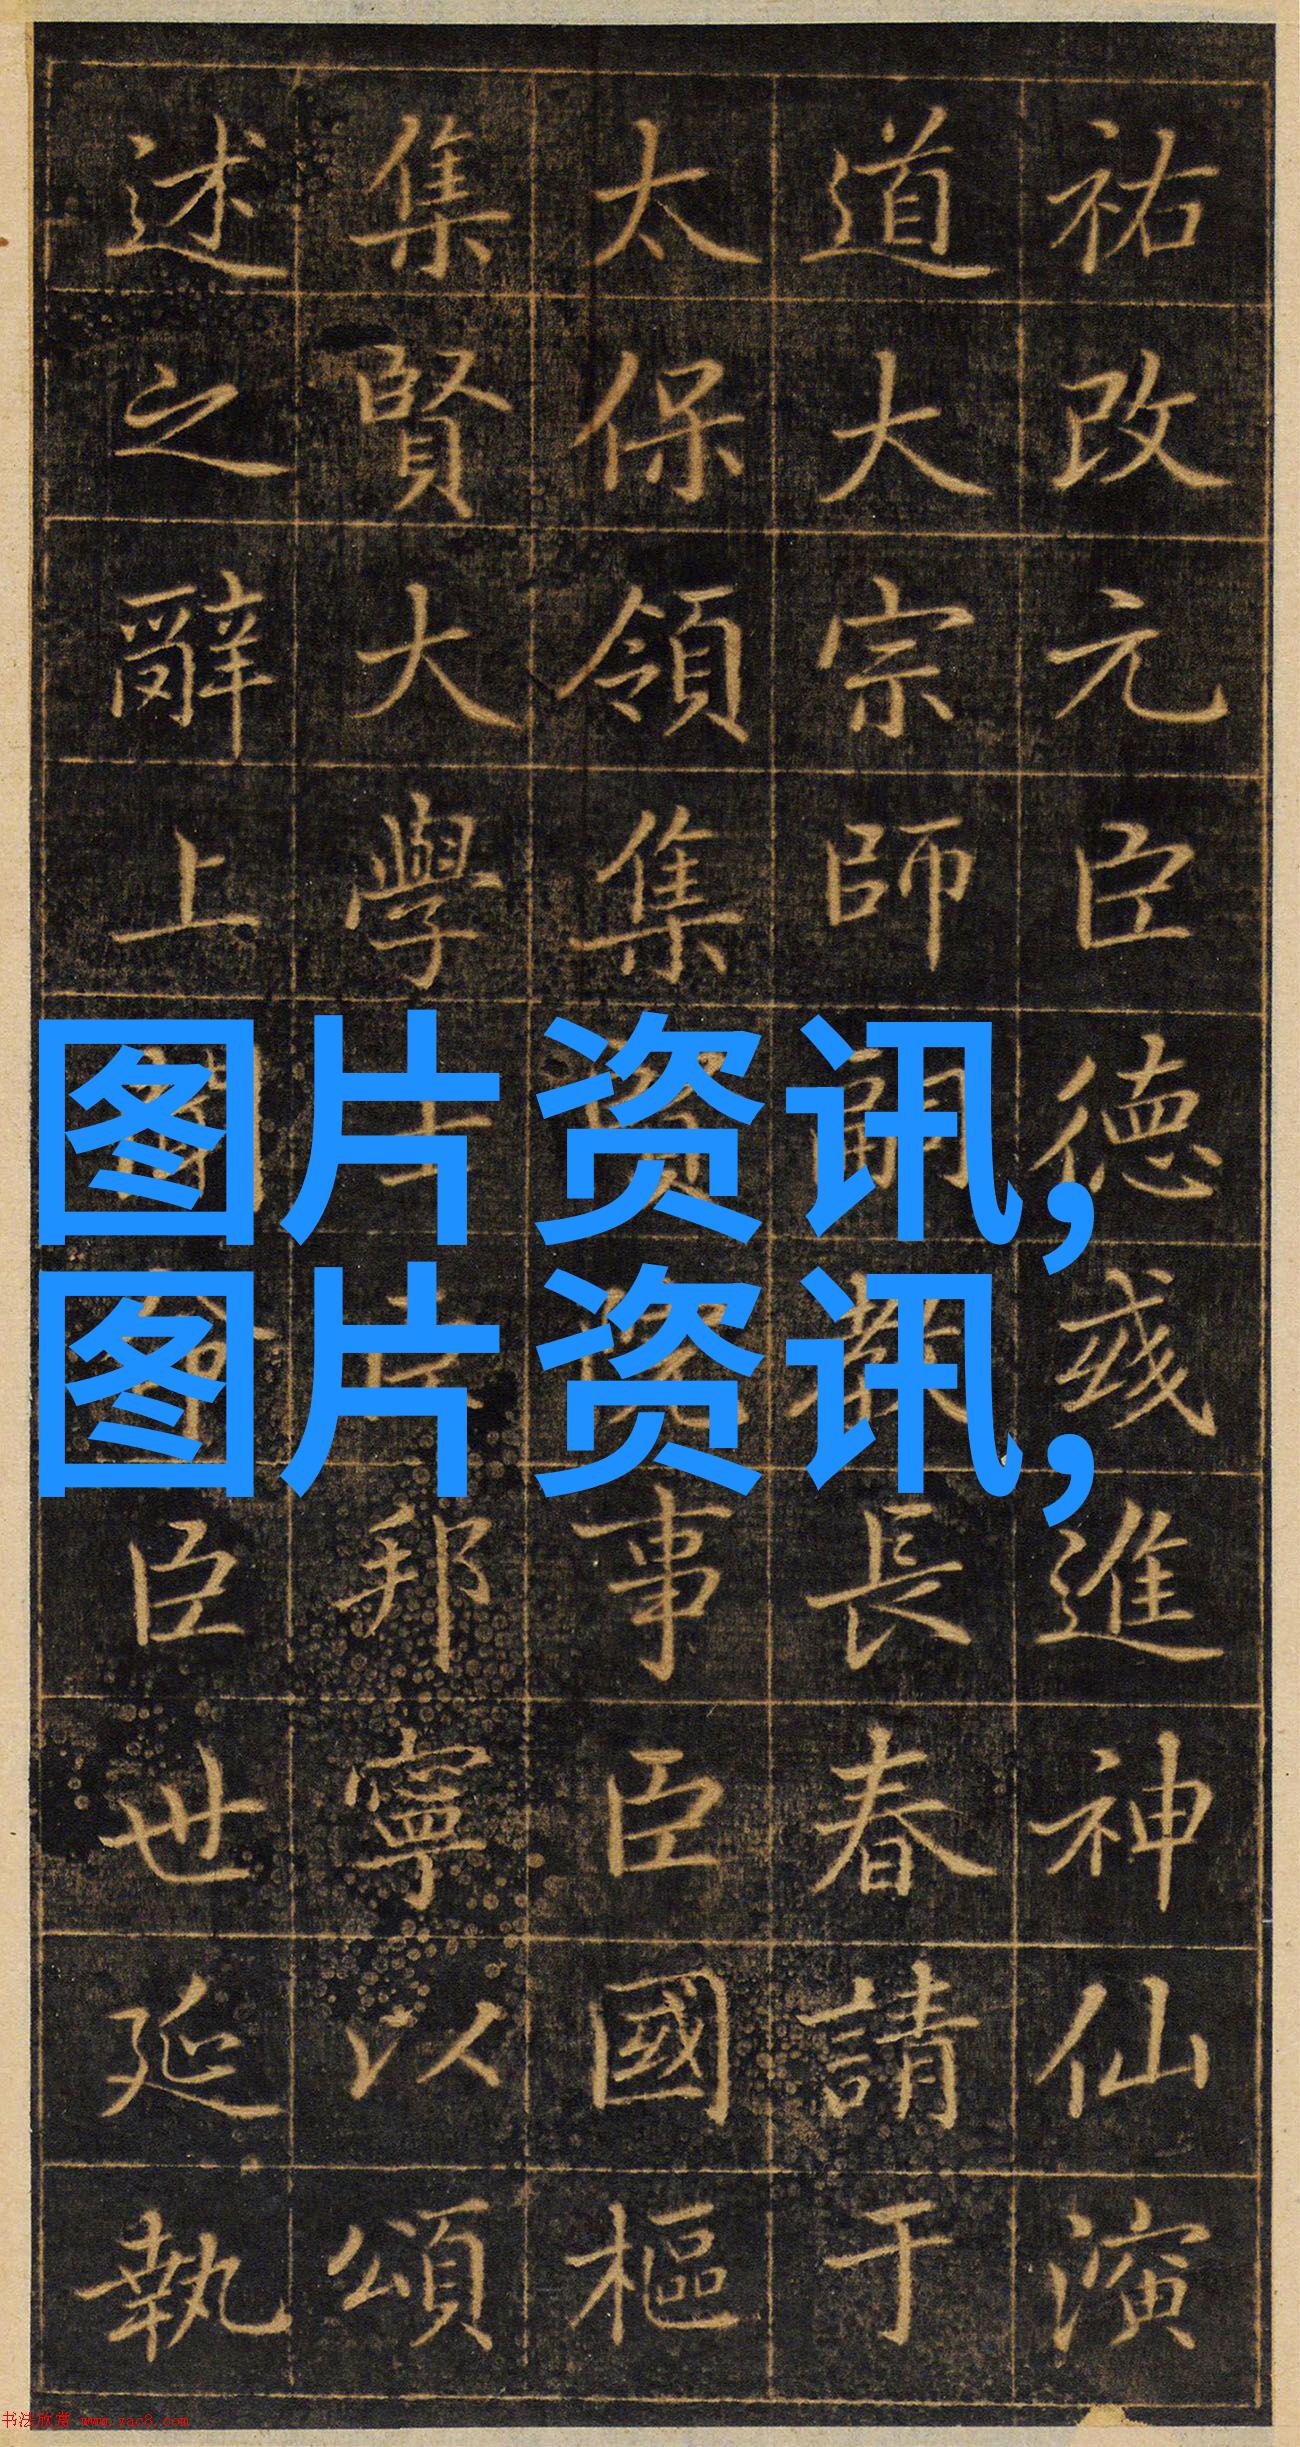 祐改元臣德彧進神仙演
道大宗師嗣教長春請于
太保領集賢院事臣國樞
集賢大學士臣邦寧以頌
述之辭上聞臣世延執
图片资讯,
图片资讯,
书法欣赏 www.yac8.com